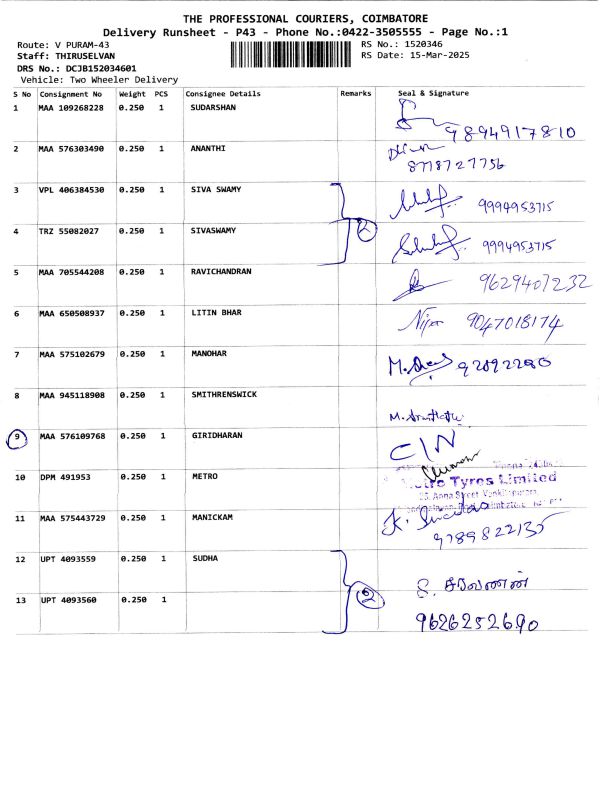 THE PROFESSIONAL COURIERS, COIMBATORE
Delivery Runsheet - P43 - Phone No.:0422-3505555 - Page No.:1
Route: V PURAM-43
RS No.: 1520346
Staff: THIRUSELVAN
RS Date: 15-Mar-2025
DRS No.: DCJB152034601
Vehicle: Two Wheeler Delivery
S No Consignment No Weight PCS Consignee Details Remarks Seal & Signature
1 MAA 109268228 0.250 1 SUDARSHAN
9894917810
2 MAA 576303490 0.250 1 ANANTHI
8778727756
3 VPL 406384530 0.250 1 SIVA SWAMY
9994953715
2
4 TRZ 55082027 0.250 1 SIVASWAMY
9994953715
5 MAA 705544208 0.250 1 RAVICHANDRAN
9629407232
6 MAA 650508937 0.250 1 LITIN BHAR
9047018174
7 MAA 575102679 0.250 1 MANOHAR
8 MAA 945118908 0.250 1 SMITHRENSWICK
9 MAA 576109768 0.250 1 GIRIDHARAN
C/N
10 DPM 491953 0.250 1 METRO
Metro Tyres Limited
11 MAA 575443729 0.250 1 MANICKAM
9789822135
12 UPT 4093559 0.250 1 SUDHA
S. சரவணன்
2
13 UPT 4093560 0.250 1
9626252690